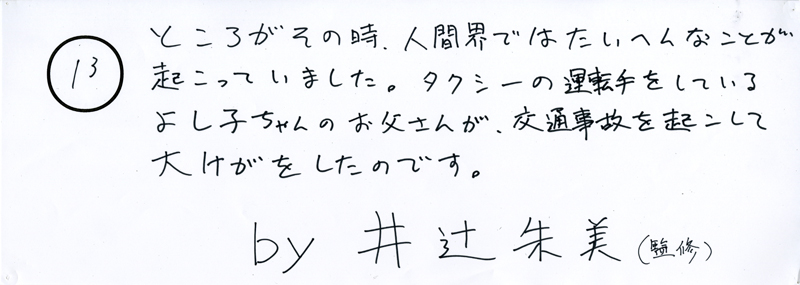 13
ところがその時、人間界ではたいへんなことが
起こっていました。タクシーの運転手をしている
よし子ちゃんのお父さんが、交通事故を起こして
大けがをしたのです。
by 井辻朱美(監修)